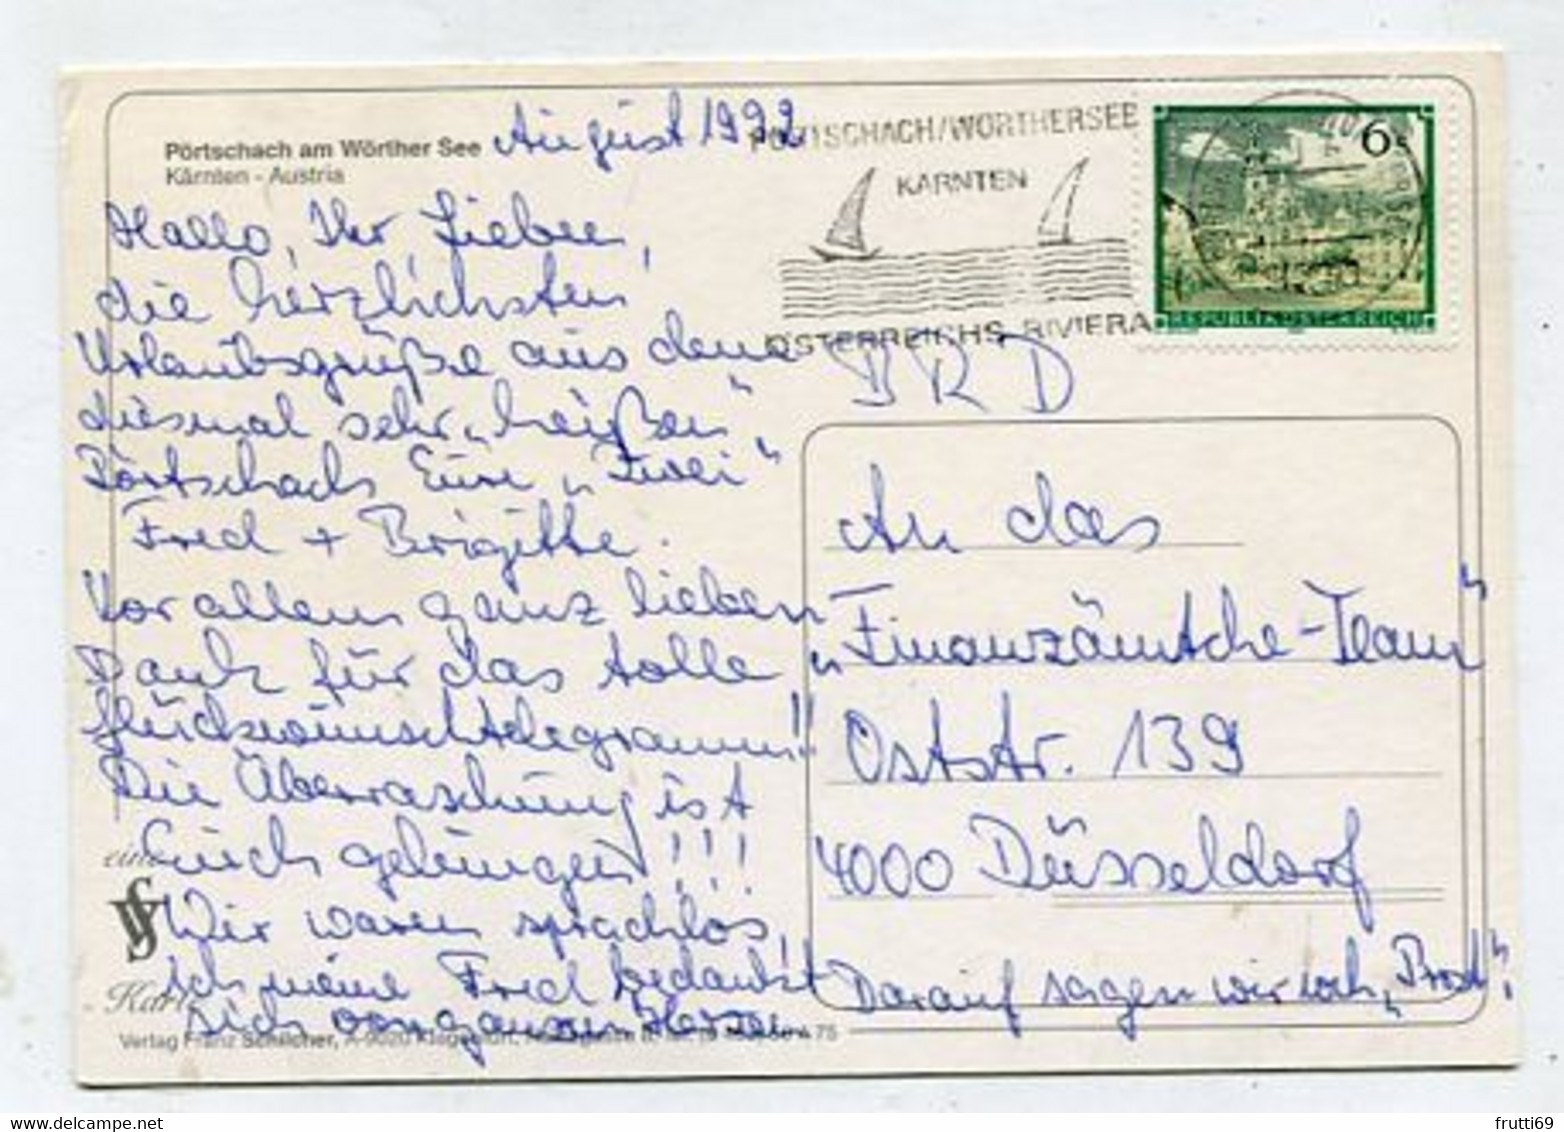 August 1992
Pörtschach am Wörther See
Kärnten - Austria
PÖRTSCHACH/WÖRTHERSEE
KÄRNTEN
ÖSTERREICHS RIVIERA
6 S
REPUBLIK ÖSTERREICH
Hallo, Ihr Lieben,
die herzlichsten
Urlaubsgrüße aus dem
diesmal sehr „heißen"
Pörtschach Eure „Zwei"
Fred + Brigitte.
Vor allem ganz lieben
Dank für das tolle
Glückwunschtelegramm!!
Die Überraschung ist
Euch gelungen!!!
Wir waren sprachlos
Ich meine Fred bedankt
sich von ganzem Herzen
BRD
An das
„Finanzämtche-Team"
Oststr. 139
4000 Düsseldorf
Darauf sagen wir noch „Prost"!
eine
Karte
Verlag Franz Schilcher, A-9020 Klagenfurt,
frutti69